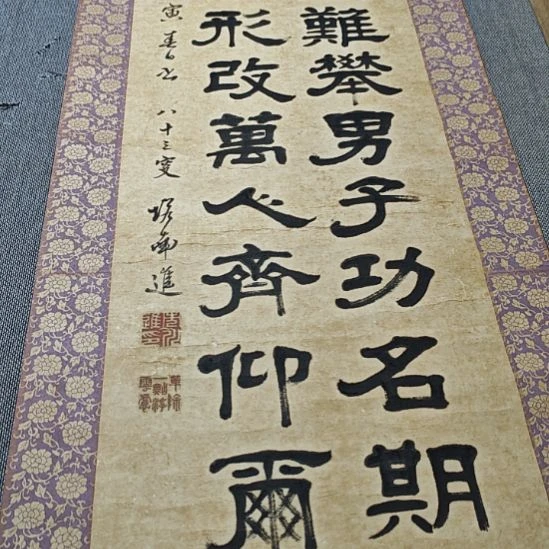 難攀男子功名期
形改萬人齊仰爾
寅春日 八十三叟 塔南進